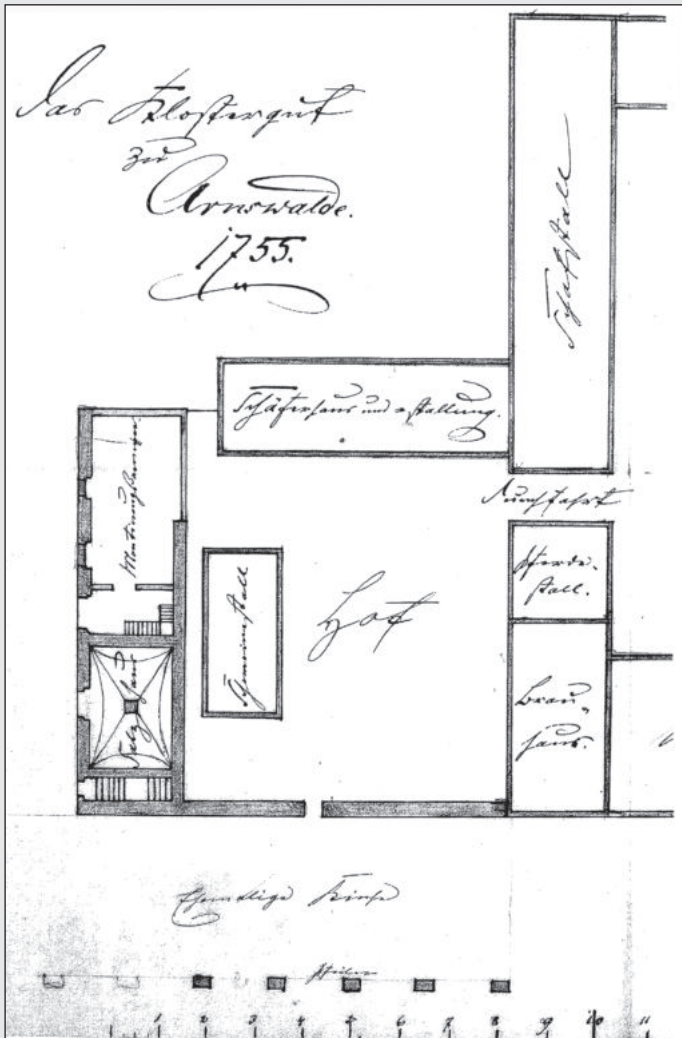 Das Klostergut
zu
Arnswalde.
1755.
Schafstall
Schäferhaus und Stallung.
Durchfahrt
Montirungskammer
Pferde-
stall.
Schweinestall
Hof
Salzhaus
Brau-
haus.
Ehemalige Kirche
Pfeiler
1 2 3 4 5 6 7 8 9 10 11